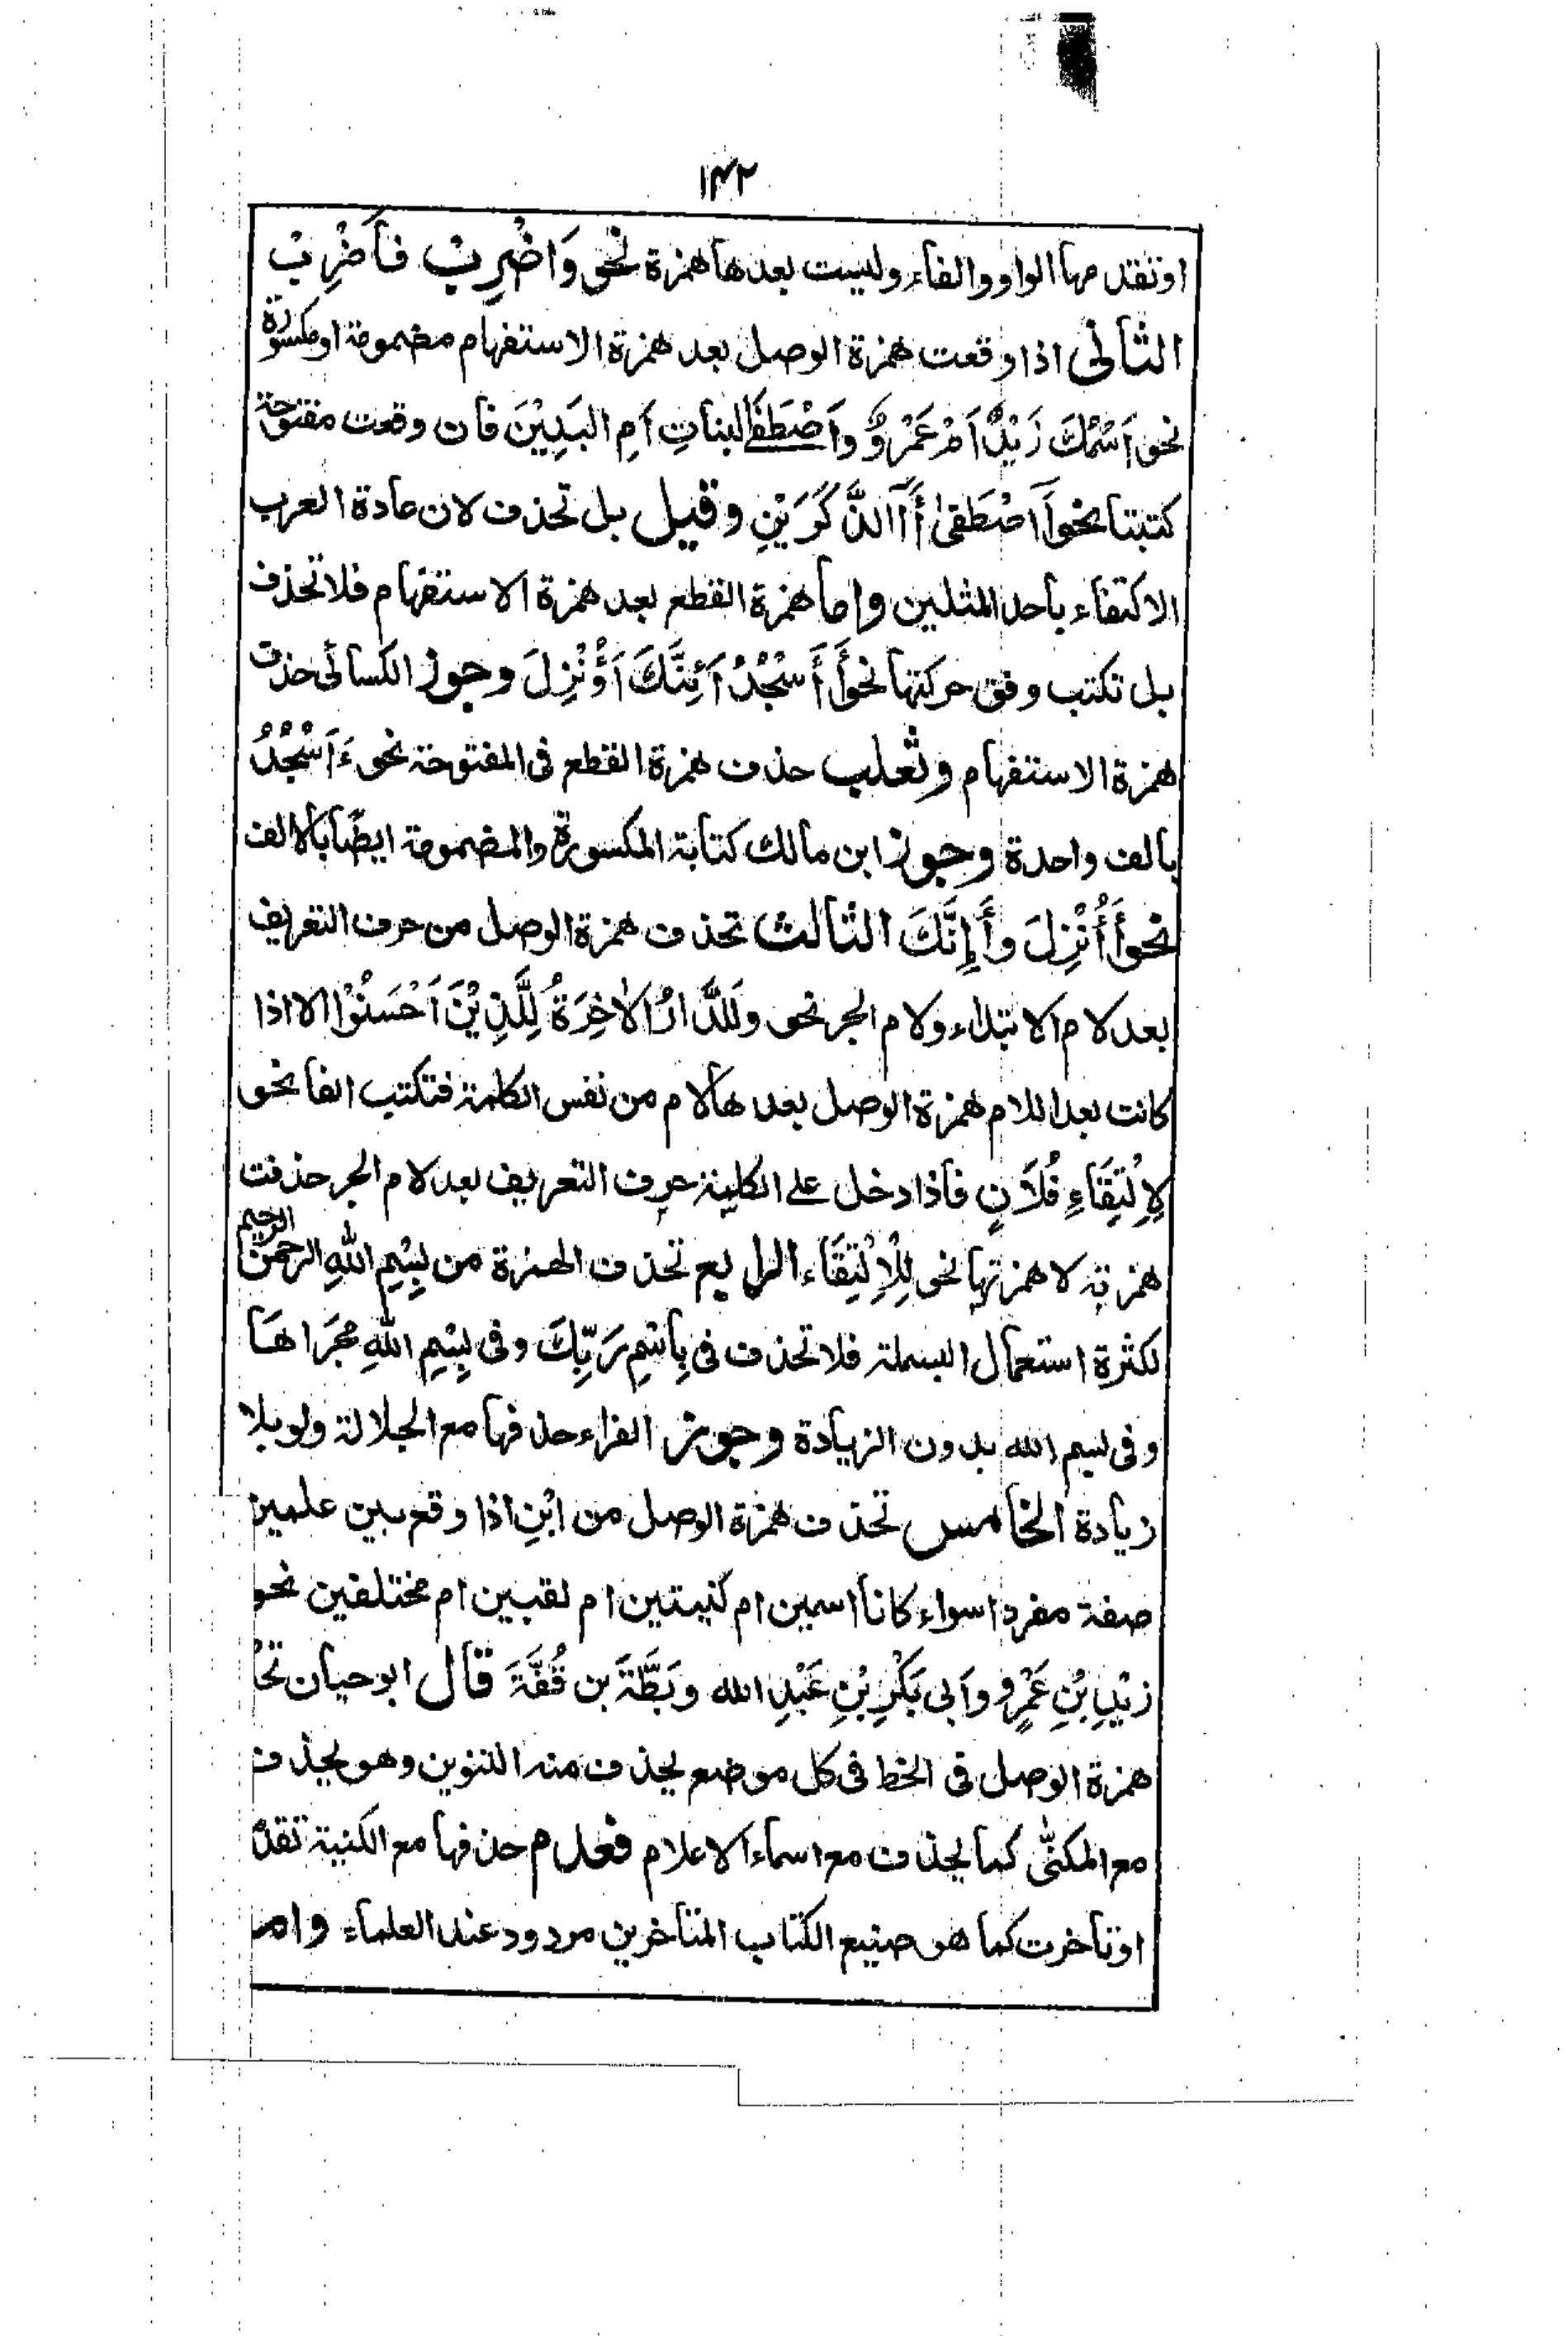 ١٣٢
اوتتقدمها الواو والفاء وليست بعدها همزة نحو وَاضْرِبْ فَاَضْرِبْ
الثاني اذا وقعت همزة الوصل بعد همزة الاستفهام مضمومة او مكسورة
نحو اَسْمُكَ زَيْدٌ اَمْ عَمْرٌو واَصْطَفَى البناتِ اَمِ البَنِيْنَ فان وقعت مفتوحة
كتبتا نحو اَآصْطَفىٰ أَآالذَّكَرَيْنِ وقيل بل تحذف لان عادة العرب
الاكتفاء باحد المثلين واما همزة القطع بعد همزة الاستفهام فلا تحذف
بل تكتب وفق حركتها نحو أَأَسْجُدُ اَئِنَّكَ اَؤُنْزِلَ وجوز الكسائى حذف
همزة الاستفهام وثعلب حذف همزة القطع فى المفتوحة نحو ءَاَسْجُدُ
بالف واحدة وجوز ابن مالك كتابة المكسورة والمضمومة ايضًا بالالف
نحو أَأُنْزِلَ وأَإِنَّكَ الثالث تحذف همزة الوصل من حرف التعريف
بعد لام الابتداء ولام الجر نحو ولَلدَّارُ الاٰخِرَةُ لِلَّذِيْنَ اَحْسَنُوْا الا اذا
كانت بعد اللام همزة الوصل بعدها لام من نفس الكلمة فتكتب الفا نحو
لِاِلْتِقَاءِ فُلَانٍ فاذا دخل على الكلمة حرف التعريف بعد لام الجر حذفت
همزته لا همزتها نحو لِلْاِلْتِقَاء الرابع تحذف الهمزة من بِسْمِ اللهِ الرحمن الرحيم
لكثرة استعمال البسملة فلا تحذف فى بِاسْمِ رَبِّكَ وفى بِسْمِ اللهِ مَجْرَاهَا
وفى بسم الله بدون الزيادة وجوز الفراء حذفها مع الجلالة ولو بلا
زيادة الخامس تحذف همزة الوصل من ابْنِ اذا وقع بين علمين
صفة مفردا سواء كانا اسمين ام كنيتين ام لقبين ام مختلفين نحو
زَيْدِ بْنِ عَمْرٍو واَبى بَكْرِ بْنِ عَبْدِ الله وبَطَّةَ بن قُفَّةَ قال ابوحيان تحذ
همزة الوصل فى الخط فى كل موضع يحذف منه التنوين وهو يحذف
مع المكنّٰى كما يحذف مع اسماء الاعلام فعلم حذفها مع الكنية تقدم
اوتاخرت كما هو صنيع الكتاب المتاخرين مردود عند العلماء واما